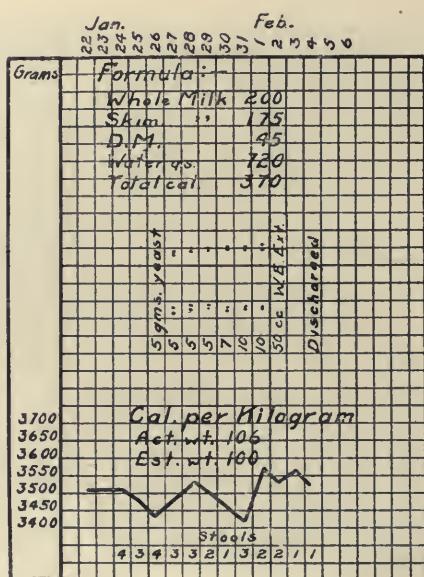 Jan. Feb.
22 23 24 25 26 27 28 29 30 31 1 2 3 4 5 6
Grams
Formula:-
Whole Milk 200
Skim " 175
D.M. 45
Water q.s. 720
Total cal. 370
5 gms. yeast
5 " "
5 " "
5 " "
7 " "
10 " "
10 " "
50 cc W.E. Ext.
Discharged
Cal. per Kilogram
Act. wt. 106
Est. wt. 100
3700
3650
3600
3550
3500
3450
3400
Stools
4 3 4 3 3 2 1 3 2 2 1 1